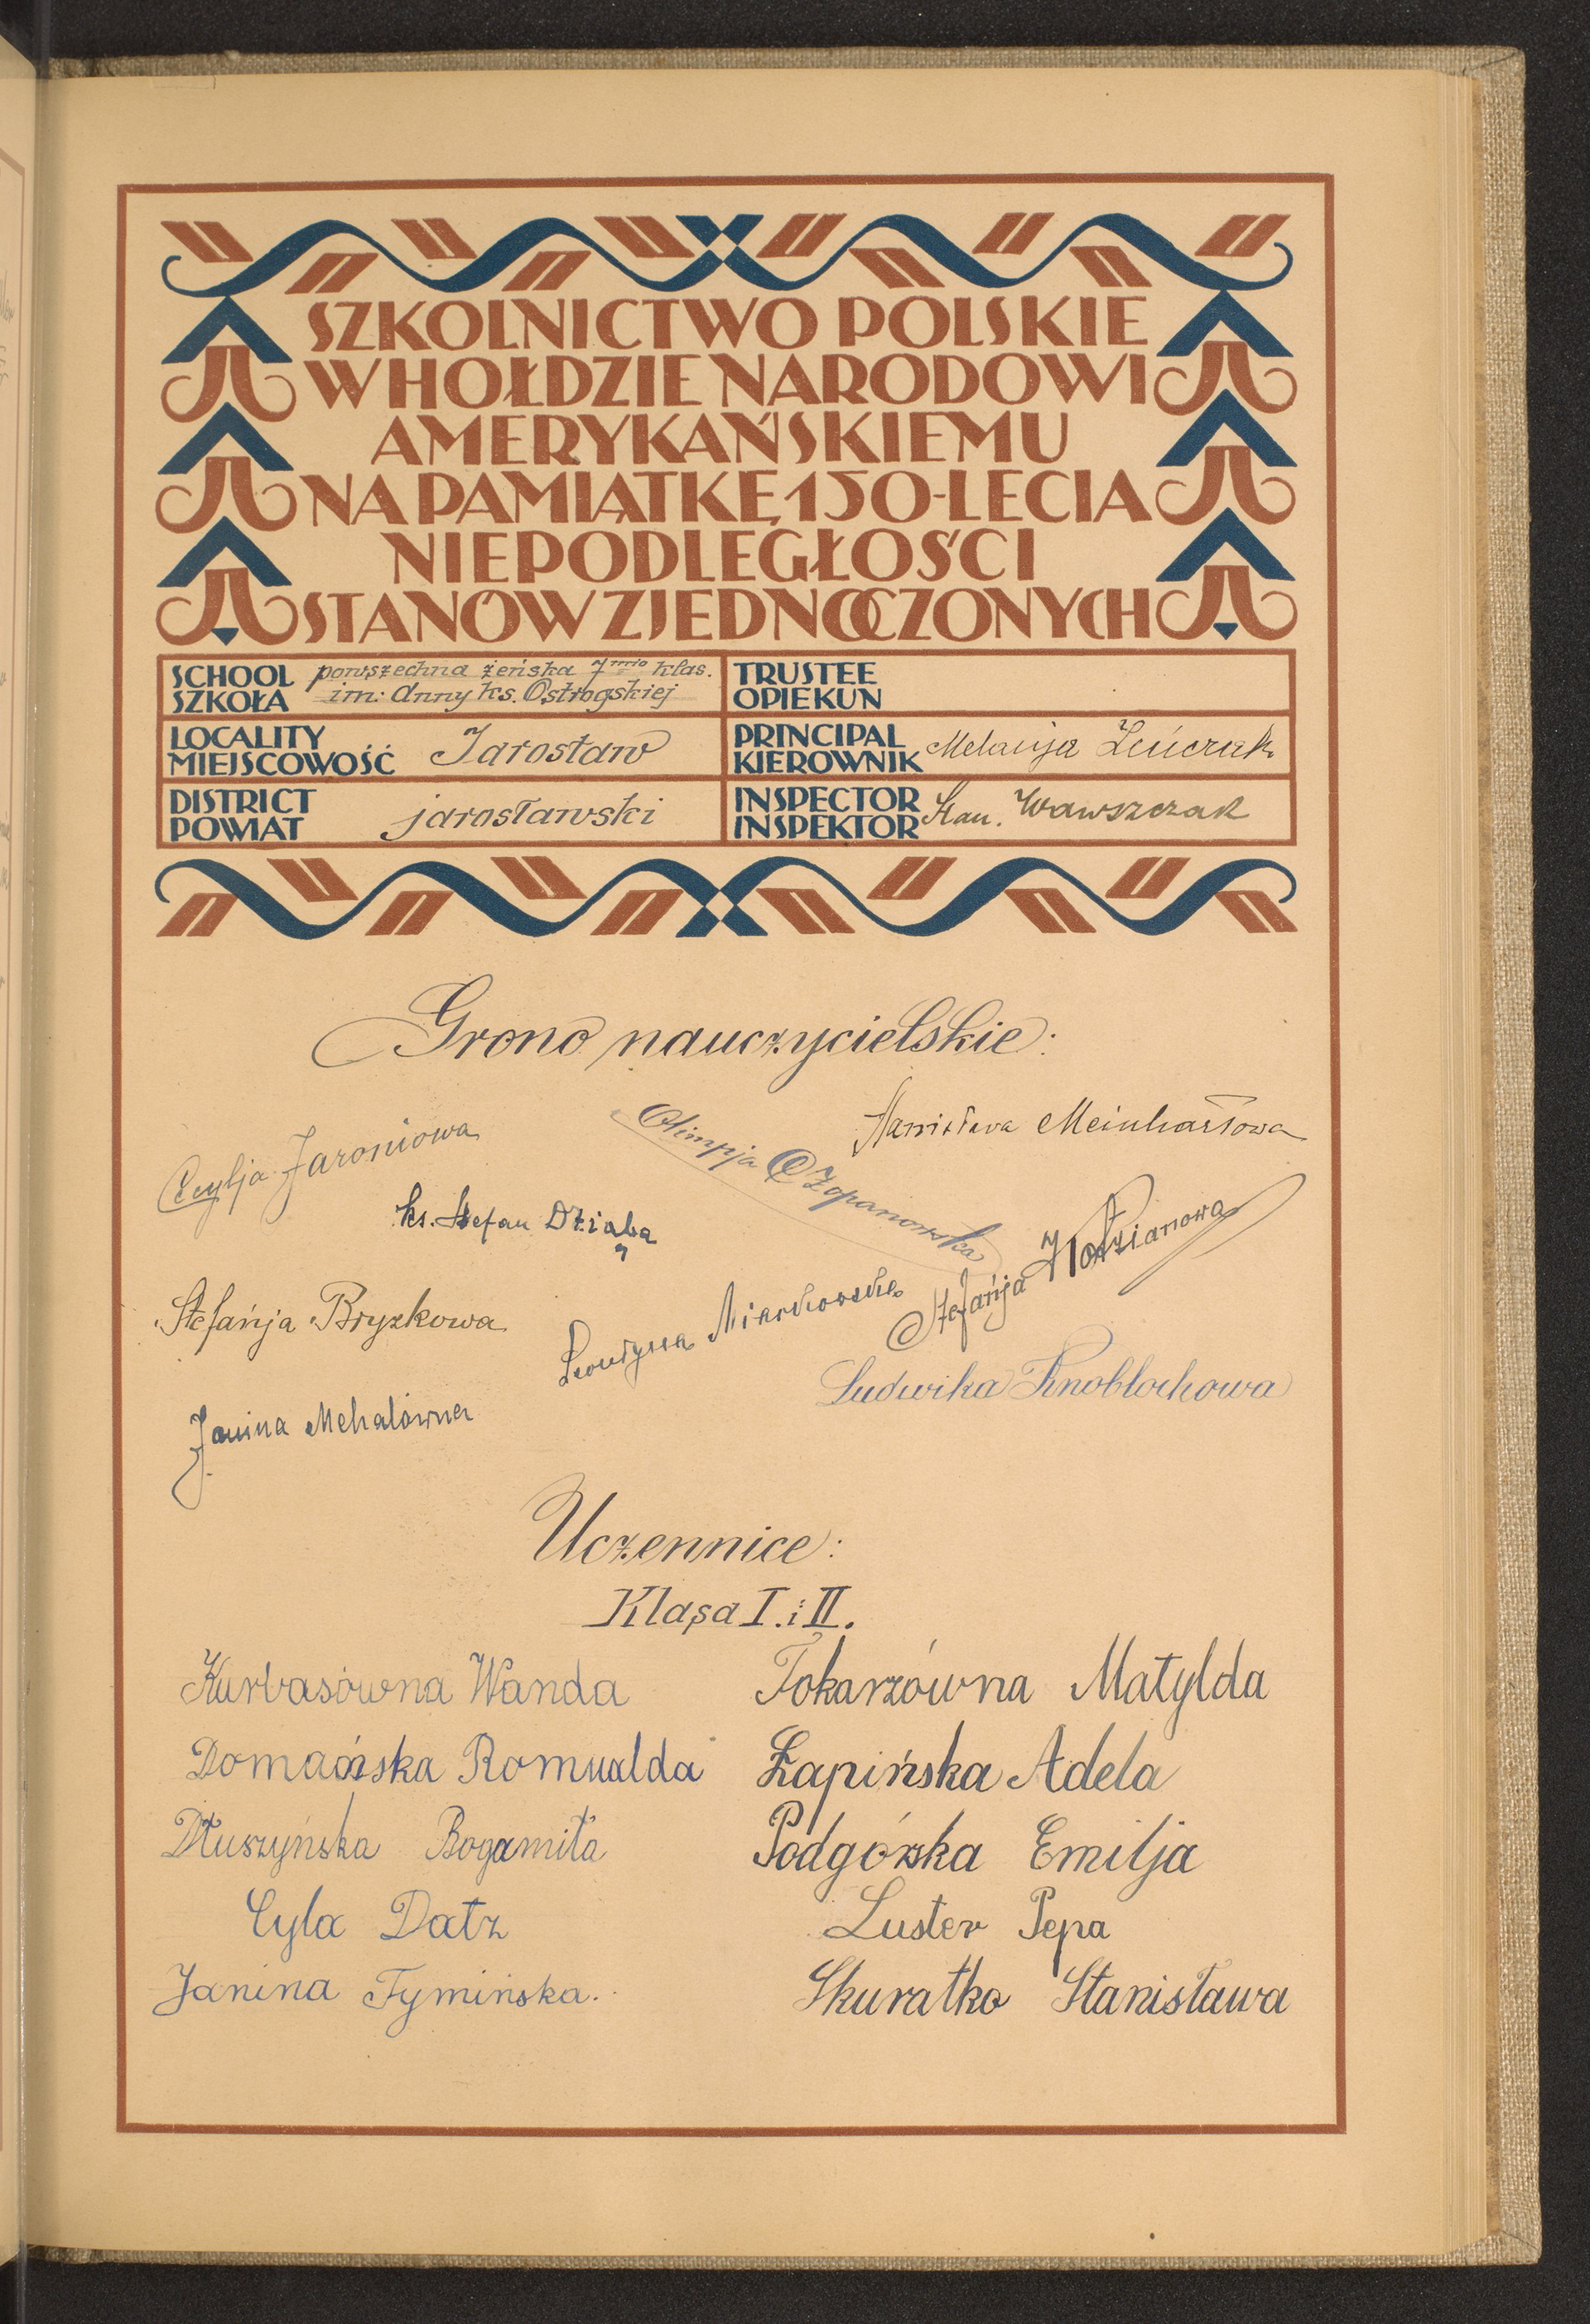 SZKOLNICTWO POLSKIE
W HOŁDZIE NARODOWI
AMERYKAŃSKIEMU
NA PAMIĄTKĘ 150-LECIA
NIEPODLEGŁOŚCI
STANÓW ZJEDNOCZONYCH
SCHOOL
SZKOŁA
powszechna żeńska 7mio klas.
im: Anny ks. Ostrogskiej
TRUSTEE
OPIEKUN
LOCALITY
MIEJSCOWOŚĆ
Jarosław
PRINCIPAL
KIEROWNIK
Melanja
DISTRICT
POWIAT
jarosławski
INSPECTOR
INSPEKTOR
Stan. Wawszczak
Grono nauczycielskie:
Cecylja Jaroniowa
Olimpja Czopanowska
Stanisława Meinhartowa
ks. Stefan Dziąba
Stefanja Bryzkowa
Stefanja
Ludwika Knoblochowa
Janina Mehalówna
Uczennice:
Klasa I. i II.
Kurbasówna Wanda
Tokarzówna Matylda
Domańska Romualda
Łapińska Adela
Dłuszyńska Bogamiła
Podgórska Emilja
Cyla Datz
Luster Pepa
Janina Tymińska.
Skuratko Stanisława